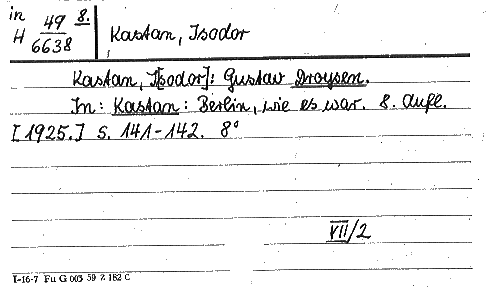 in H 49 8. / 6638
Kastan, Isodor
Kastan, I[sodor]: Gustav Droysen.
In: Kastan: Berlin, wie es war. 8. Aufl.
[1925.] S. 141-142. 8°
VII/2
I-16-7 Fu G 003 59 Z 182 C